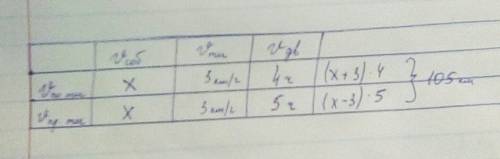 𝑣соб 𝑣теч 𝑣дв
𝑣по теч x 3 км/ч 4ч (x+3)·4
𝑣пр. теч x 3 км/ч 5ч (x-3)·5
} 105 км